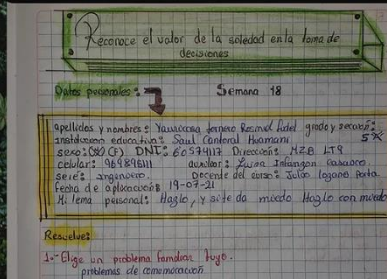 Reconoce el valor de la soledad en la toma de
decisiones
Datos personales: Semana 18
apellidos y nombres: Rosmel Fidel grado y sección:
institución educativa: Saul Cantoral Huamani 5°
sexo: (F) DNI: 60574117 Dirección: MZB LT9
celular: 969896111 auxiliar: Luisa
seré: Ingeniero. Docente del curso: Julio
fecha de aplicación: 19-07-21
Mi lema personal: Hazlo, y si te da miedo Hazlo con miedo
Resuelve:
1.- Elige un problema familiar tuyo.
problemas de comunicación